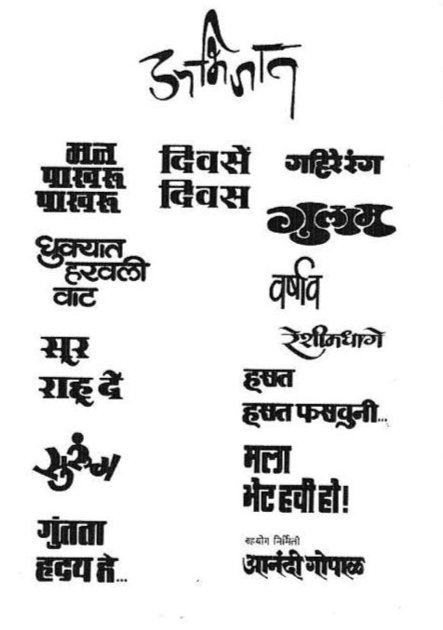 अभिजात
मन
पाखरू
पाखरू
धुक्यात
हरवली
वाट
सूर
राहू दे
सुरुंग
गुंतता
हृदय हे...
दिवसें
दिवस
गहिरे रंग
गुलाम
वर्षाव
रेशीमधागे
हसत
हसत फसवुनी...
मला
भेट हवी हो!
सहयोग निर्मिती
आनंदी गोपाळ